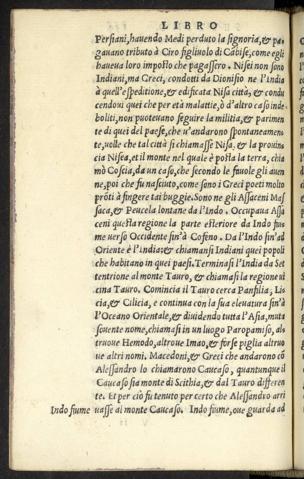 LIBRO
Persiani, hauendo Medi perduto la signoria, & pa-
gauano tributo à Ciro figliuolo di Cābise, come egli
haueua loro imposto che pagassero. Nisei non sono
Indiani, ma Greci, condotti da Dionisio ne l'India
à quell'espeditione, & edificata Nisa città; & condu
cendoui quei che per età malattie, ò d'altro caso inde-
boliti, non poteuano seguire la militia, & parimen
te di quei del paese, che u'andarono spontaneamen-
te, uolle che tal città si chiamasse Nisa, & la prouin-
cia Nisea, et il monte nel quale è posta la terra, chia
mò Coscia, da un caso, che secondo le fauole gli auen
ne, poi che fu nasciuto, come sono i Greci poeti molto
prōti à fingere tai buggie. Sono ne gli Assaceni Mas
saca, & Peucela lontane da l'Indo. Occupaua Assa
ceni questa regione la parte esteriore da Indo fiu-
me uerso Occidente sin'à Cofeno. Da Indo sin'ad
Oriente è l'India; & chiamansi Indiani quei popoli
che habitano in quei paesi. Terminasi l'India da Set
tentrione al monte Tauro, & chiamasi la regione ui
cina Tauro. Comincia il Tauro cerca Panfilia, Lis
cia, & Cilicia, e continua con la sua eleuatura sin'à
l'Oceano Orientale, & diuidendo tutta l'Asia, muta
souente nome, chiamasi in un luogo Paropamiso, al-
truoue Hemodo, altroue Imao, & forse piglia altruo
ue altri nomi. Macedoni, & Greci che andarono cō
Alessandro lo chiamarono Caucaso, quantunque il
Caucaso sia monte di Scithia, & dal Tauro differen
te. Et per ciò fu tenuto per certo che Alessandro arri
Indo fiume uasse al monte Caucaso. Indo fiume, oue guarda ad